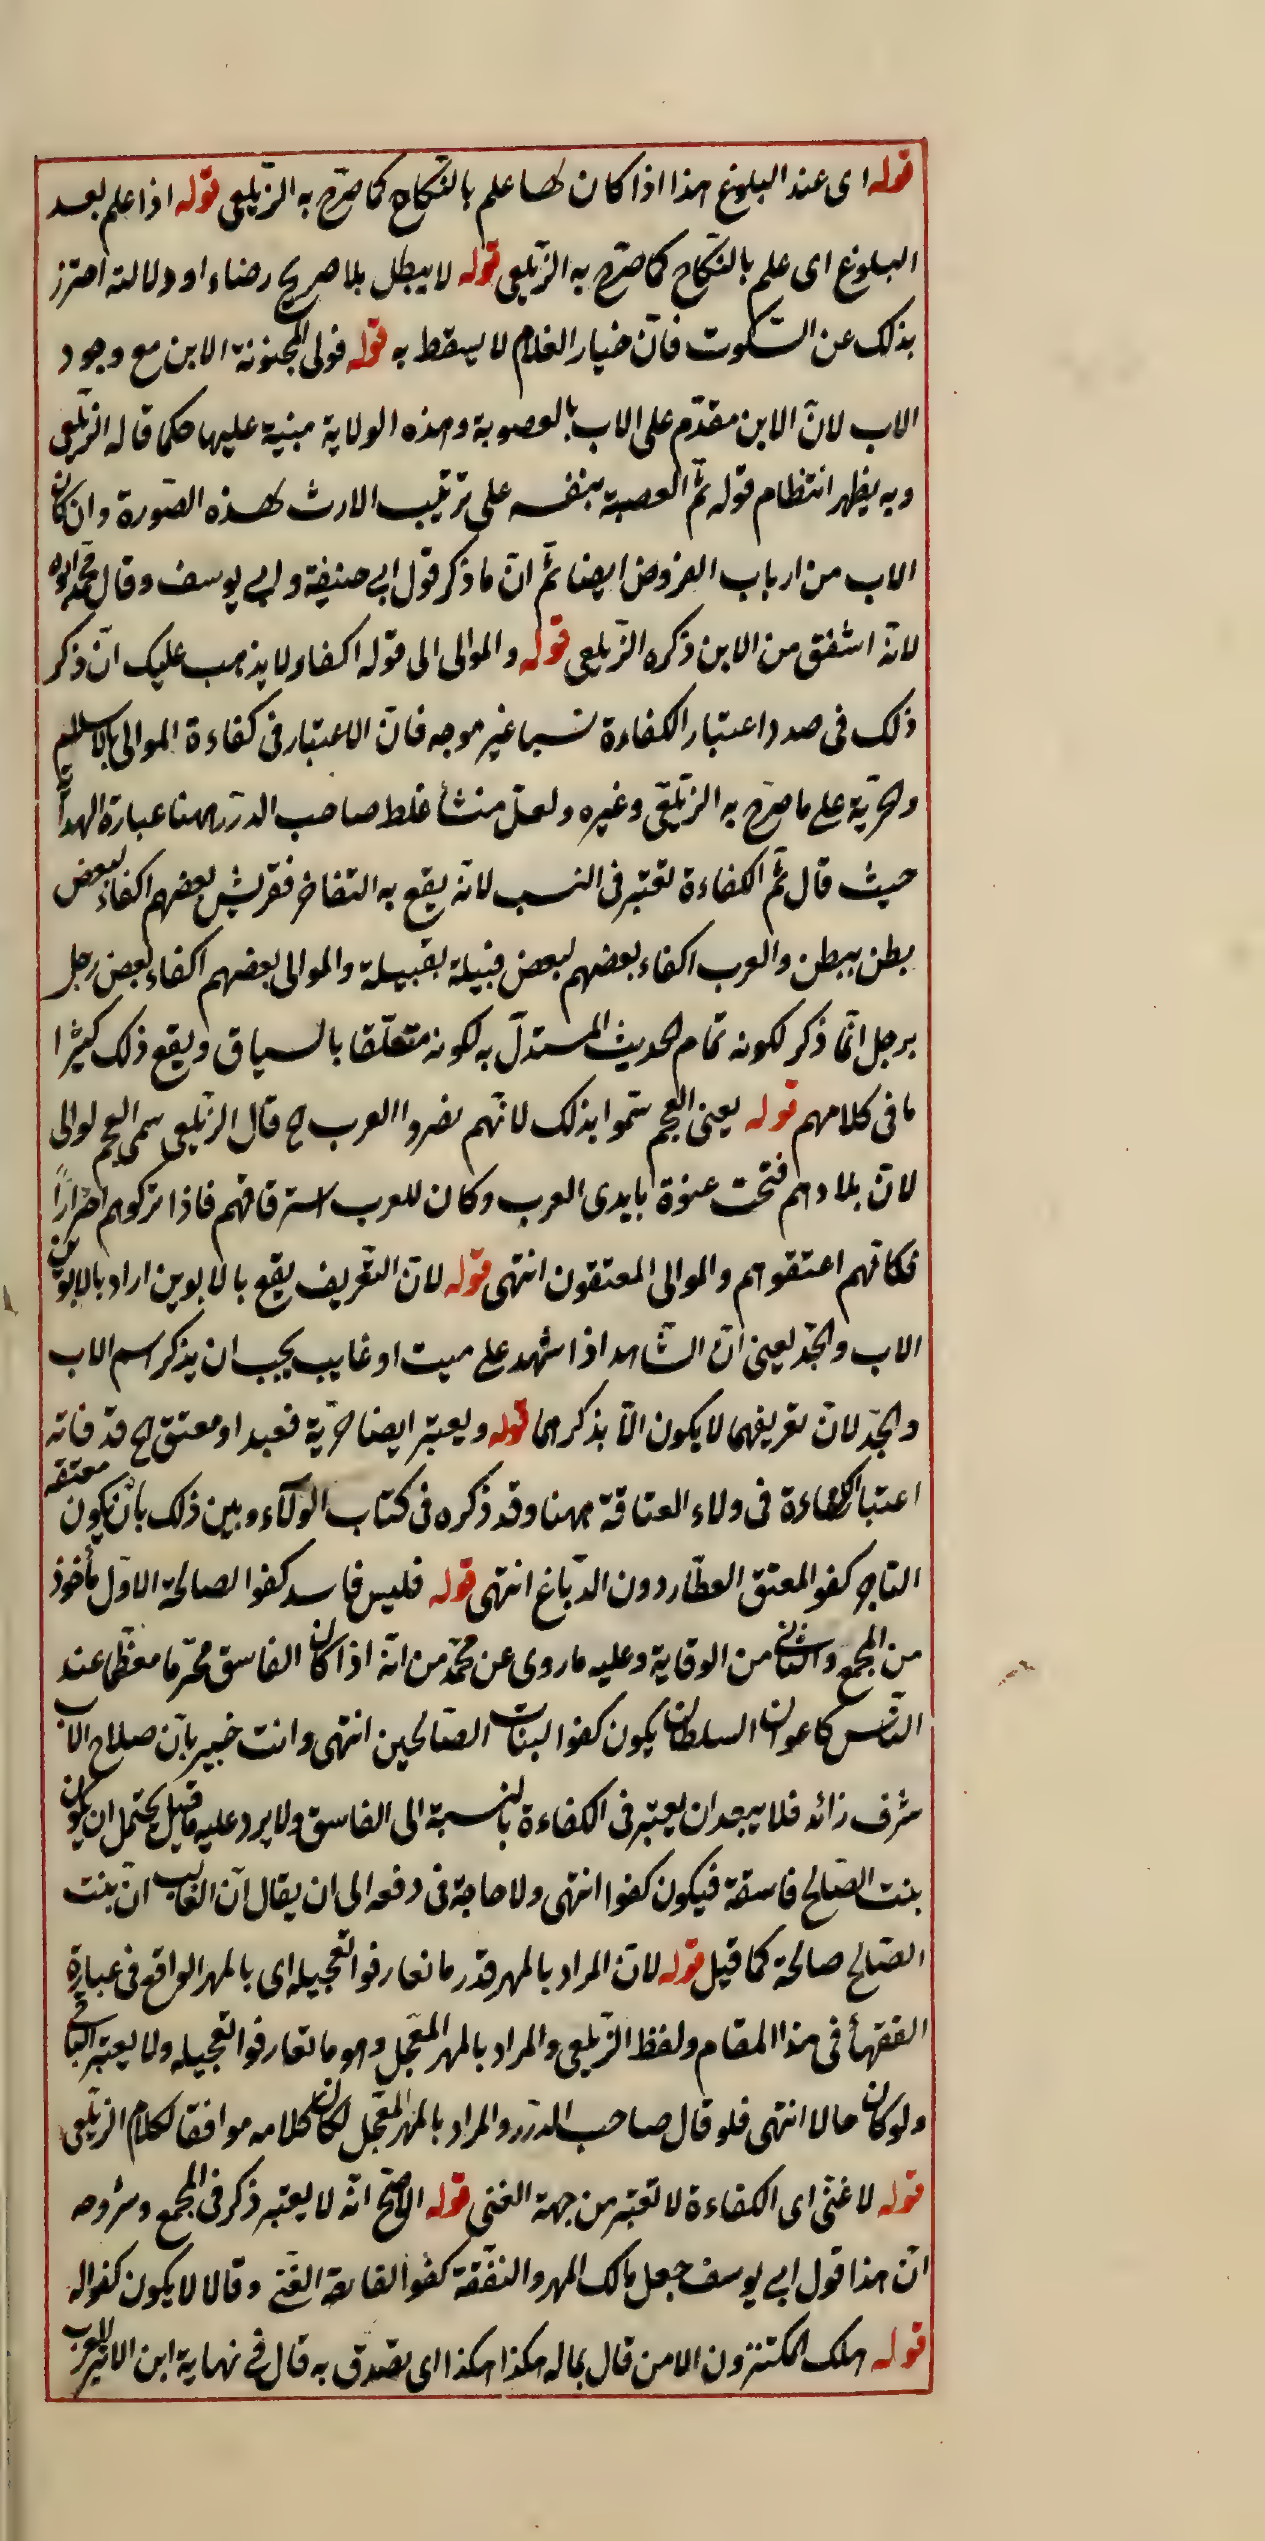 قوله اى عند البلوغ هذا اذا كان لها علم بالنّكاح كما صرّح به الزّيلعى قوله اذا علم بعد
البلوغ اى علم بالنّكاح كما صرّح به الزّيلعى قوله لا يبطل بلا صريح رضاء او دلالته احترز
بذلك عن السّكوت فانّ خيار الغلام لا يسقط به قوله فولى المجنونة الابن مع وجود
الاب لانّ الابن مقدّم على الاب بالعصوبة وهذه الولاية مبنية عليها هكما قاله الزّيلعى
وبه يظهر انتظام قوله ثمّ العصبة بنفسه على ترتيب الارث لهذه الصّورة وان كان
الاب من ارباب الفروض ايضا ثمّ انّ ما ذكر قول ابى حنيفة وابى يوسف وقال محمّد ابوه
لانّه اشفق من الابن ذكره الزّيلعى قوله والموالى الى قوله اكفاء ولا يذهب عليك انّ ذكر
ذلك فى صدد اعتبار الكفاءة نسبا غير موجه فانّ الاعتبار فى كفاءة الموالى بالاسلام
والحرّية على ما صرّح به الزّيلعى وغيره ولعلّ منشأ غلط صاحب الدّرر ههنا عبارة الهداية
حيث قال ثمّ الكفاءة تعتبر فى النسب لانّه يقع به التفاخر فقريش بعضهم اكفاء لبعض
بطن ببطن والعرب اكفاء بعضهم لبعض قبيلة بقبيلة والموالى بعضهم اكفاء لبعض رجل
برجل انّما ذكر لكونه تمام الحديث المستدلّ به لكونه متعلّقا بالسياق ويقع ذلك كثيرا
ما فى كلامهم قوله يعنى العجم سمّوا بذلك لانّهم نصروا العرب ح قال الزّيلعى سمى العجم لوالى
لانّ بلادهم فتحت عنوة بايدى العرب وكان للعرب استرقاقهم فاذا تركوهم احرارًا
فكانّهم اعتقوهم والموالى المعتقون انتهى قوله لانّ التّعريف يقع بالابوين اراد بالابوين
الاب والجدّ يعنى انّ الشّاهد اذا شهد على ميت او غايب يجب ان يذكر اسم الاب
والجدّ لانّ تعريفهما لا يكون الّا بذكرهما قوله ويعتبر ايضا حرّية فعبد او معتق الح قد فاته
اعتبار الكفاءة فى ولاء العتاقة ههنا وقد ذكره فى كتاب الولاء وبين ذلك بانّ يكون معتقه
التاجر كفوا لمعتق العطّار دون الدّباغ انتهى قوله فليس فاسد كفوا لصالحة الاوّل مأخوذ
من المجمع والثانى من الوقاية وعليه ما روى عن محمّد من انّه اذا كان الفاسق محترما معظّما عند
النّاس كاعوان السلطان يكون كفوا لبنات الصّالحين انتهى وانت خبير بانّ صلاح الاب
شرف زائد فلا يبعد ان يعتبر فى الكفاءة بالنسبة الى الفاسق ولا يرد عليه ما قيل يحتمل ان يكون
بنت الصّالح فاسقة فيكون كفوا انتهى ولا حاجة فى دفعه الى ان يقال انّ الغالب انّ بنت
الصّالح صالحة كما قيل قوله لانّ المراد بالمهر قدر ما تعارفوا تعجيله اى بالمهر الواقع فى عبارة
الفقهاء فى هذا المقام ولفظ الزّيلعى والمراد بالمهر المعجّل وهو ما تعارفوا تعجيله ولا يعتبر الباقى
ولو كان حالا انتهى فلو قال صاحب الدّرر والمراد بالمهر المعجّل لكان كلامه موافقا لكلام الزّيلعى
قوله لا غنى اى الكفاءة لا تعتبر من جهة الغنى قوله الاصحّ انّه لا يعتبر ذكر فى المجمع وشروحه
انّ هذا قول ابى يوسف جعل مالك المهر والنّفقة كفوا لفايقة الغنى وقالا لا يكون كفوا له
قوله هلك المكتنزون الا من قال بماله هكذا هكذا اى تصدّق به قال فى نهاية ابن الاثير العرب